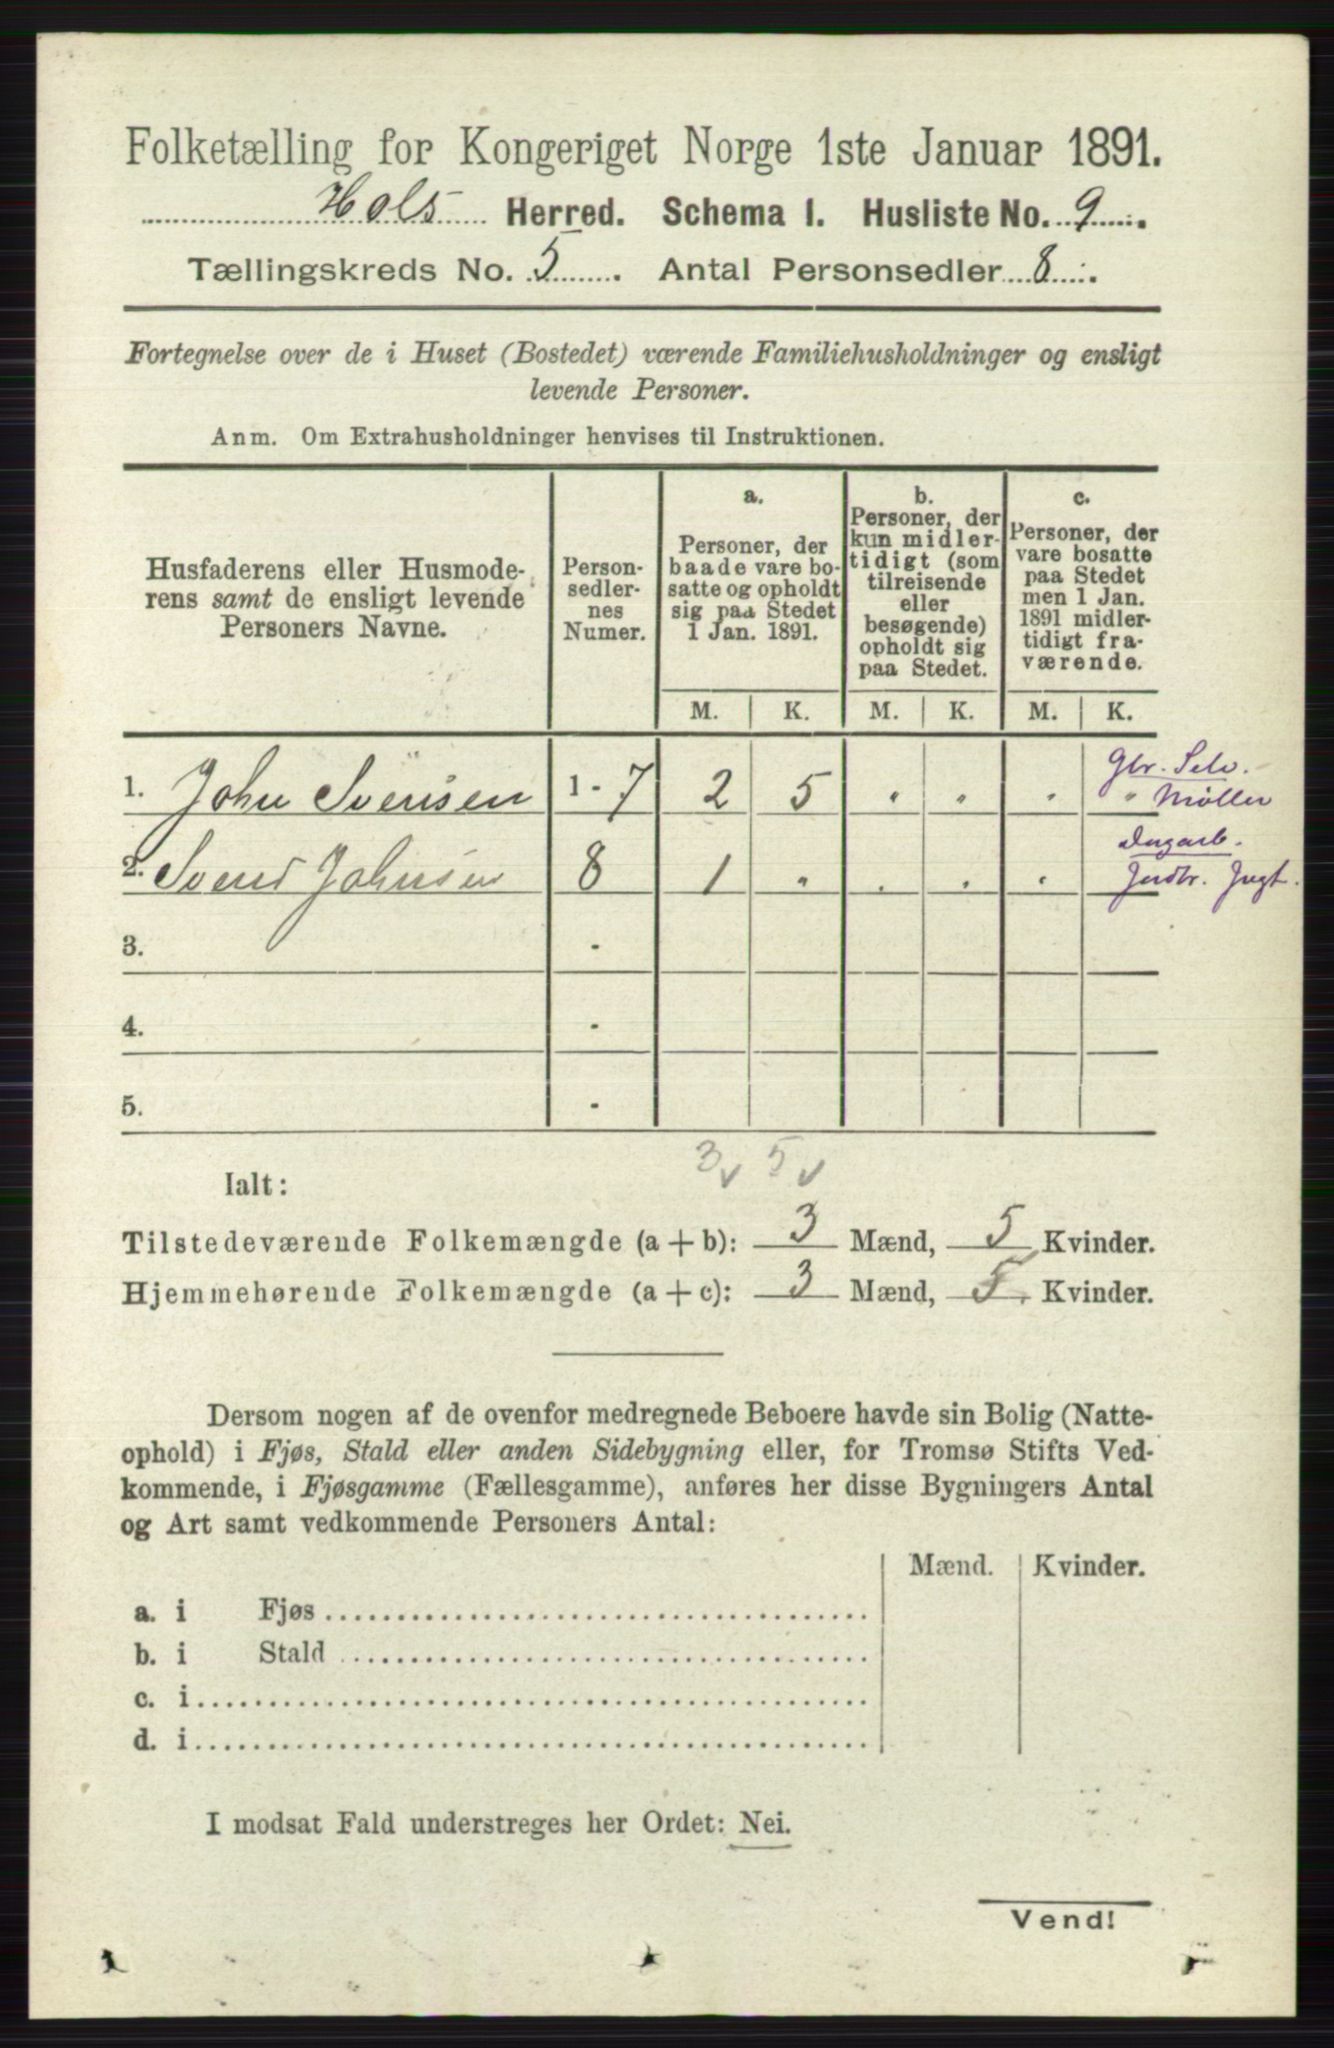 Folketælling for Kongeriget Norge 1ste Januar 1891.
Hols Herred. Schema 1. Husliste No. 9.
Tællingskreds No. 5. Antal Personsedler 8.
Fortegnelse over de i Huset (Bostedet) værende Familiehusholdninger og ensligt
levende Personer.
Anm. Om Extrahusholdninger henvises til Instruktionen.
Husfaderens eller Husmode-
rens samt de ensligt levende
Personers Navne.
Person-
sedler-
nes
Numer.
a.
Personer, der
baade vare bo-
satte og opholdt
sig paa Stedet
1 Jan. 1891.
b.
Personer, der
kun midler-
tidigt (som
tilreisende
eller
besøgende)
opholdt sig
paa Stedet.
c.
Personer, der
vare bosatte
paa Stedet
men 1 Jan.
1891 midler-
tidigt fra-
værende.
M. K. M. K. M. K.
Gbr. Selv.
1. John Svensen 1 - 7 2 5 " " " " Møller
Dagarb.
2. Svend Johnsen 8 1 " " " "
3. -
4. -
5. -
3 v 5 v
Ialt:
Tilstedeværende Folkemængde (a + b): 3 Mænd, 5 Kvinder.
Hjemmehørende Folkemængde (a + c): 3 Mænd, 5 Kvinder.
Dersom nogen af de ovenfor medregnede Beboere havde sin Bolig (Natte-
ophold) i Fjøs, Stald eller anden Sidebygning eller, for Tromsø Stifts Ved-
kommende, i Fjøsgamme (Fællesgamme), anføres her disse Bygningers Antal
og Art samt vedkommende Personers Antal:
Mænd. Kvinder.
a. i Fjøs
b. i Stald
c. i
d. i
I modsat Fald understreges her Ordet: Nei.
Vend!